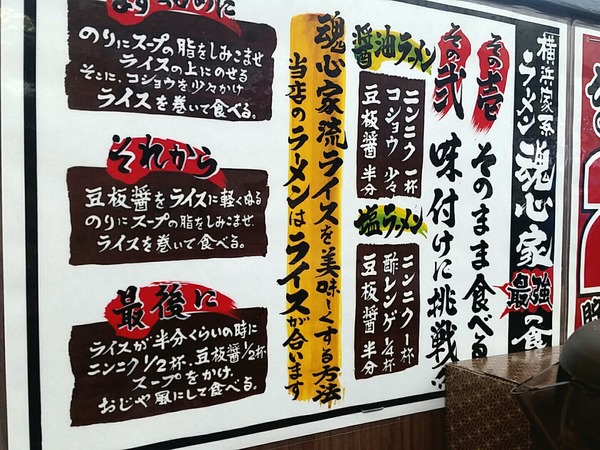 横浜家系
ラーメン魂心家
最強の食
その壱
そのまま食べる
その弐
味付けに挑戦
醤油ラーメン
ニンニク 一杯
コショウ 少々
豆板醤 半分
塩ラーメン
ニンニク 1杯
酢レンゲ 1/4杯
豆板醤 半分
魂心家流ライスを美味しくする方法
当店のラーメンはライスが合います
まずはじめに
のりにスープの脂をしみこませ
ライスの上にのせる
そこに、コショウを少々かけ
ライスを巻いて食べる。
それから
豆板醤をライスに軽くぬる
のりにスープの脂をしみこませ、
ライスを巻いて食べる。
最後に
ライスが半分くらいの時に
ニンニク1/2杯、豆板醤1/2杯
スープをかけ、
おじや風にして食べる。